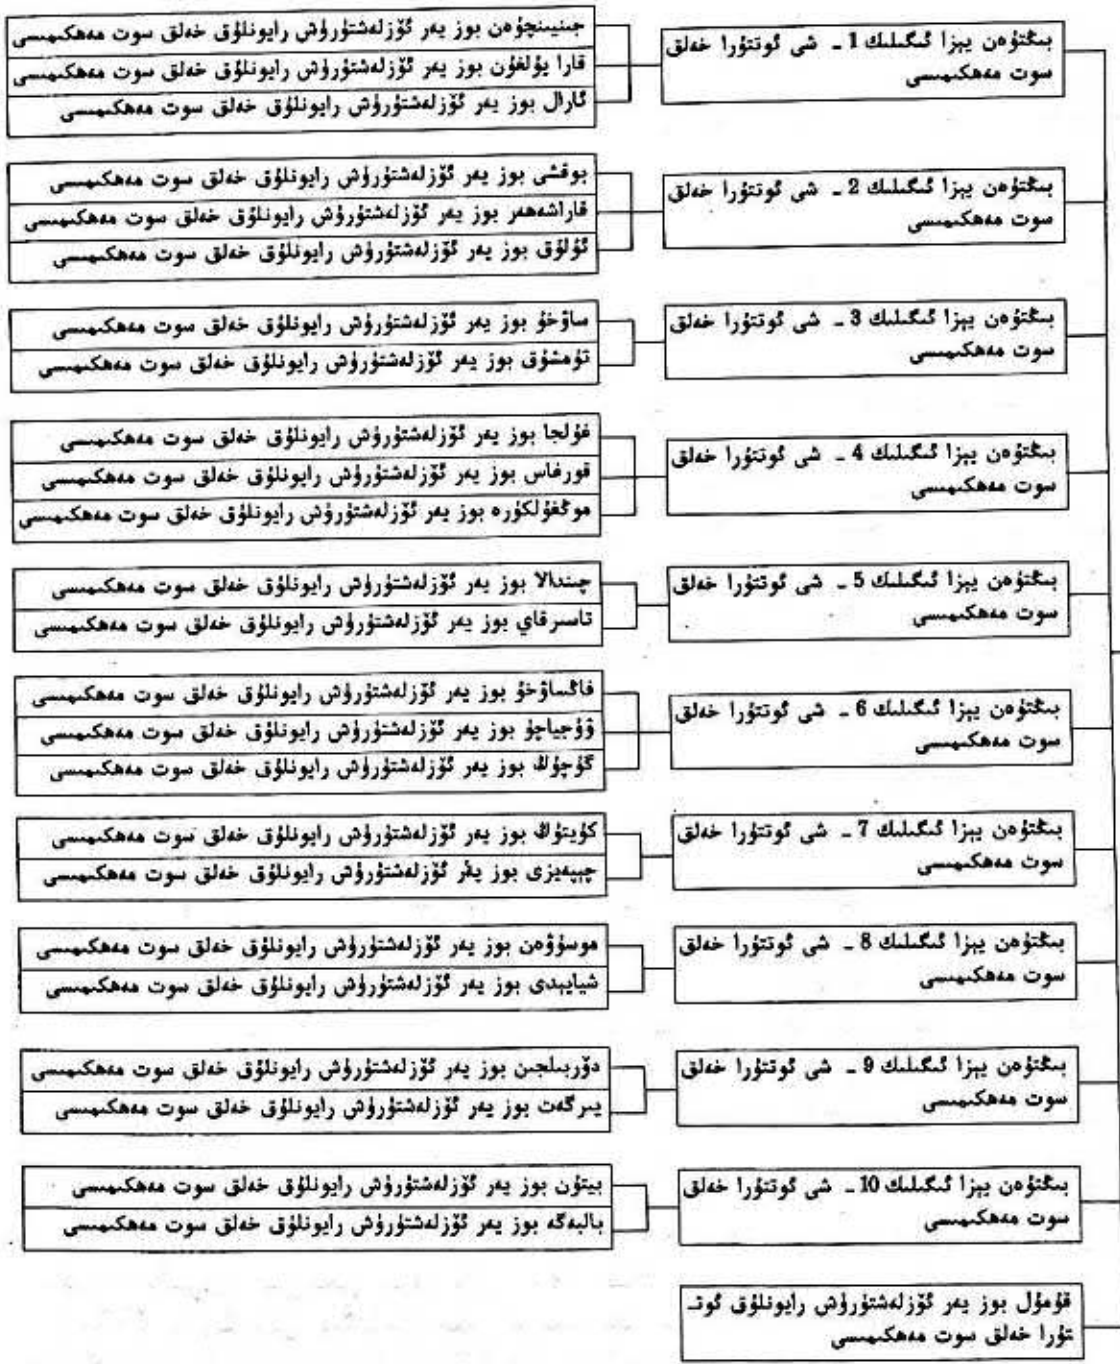 بىڭتۇەن يېزا ئىگىلىك 1 ـ شى ئوتتۇرا خەلق
سوت مەھكىمىسى
جىنيىنچۇەن بوز يەر ئۆزلەشتۈرۈش رايونلۇق خەلق سوت مەھكىمىسى
قارا يۇلغۇن بوز يەر ئۆزلەشتۈرۈش رايونلۇق خەلق سوت مەھكىمىسى
ئارال بوز يەر ئۆزلەشتۈرۈش رايونلۇق خەلق سوت مەھكىمىسى
بىڭتۇەن يېزا ئىگىلىك 2 ـ شى ئوتتۇرا خەلق
سوت مەھكىمىسى
بوقشى بوز يەر ئۆزلەشتۈرۈش رايونلۇق خەلق سوت مەھكىمىسى
قاراشەھەر بوز يەر ئۆزلەشتۈرۈش رايونلۇق خەلق سوت مەھكىمىسى
ئۇلۇق بوز يەر ئۆزلەشتۈرۈش رايونلۇق خەلق سوت مەھكىمىسى
بىڭتۇەن يېزا ئىگىلىك 3 ـ شى ئوتتۇرا خەلق
سوت مەھكىمىسى
ساۋخۇ بوز يەر ئۆزلەشتۈرۈش رايونلۇق خەلق سوت مەھكىمىسى
تۇمشۇق بوز يەر ئۆزلەشتۈرۈش رايونلۇق خەلق سوت مەھكىمىسى
بىڭتۇەن يېزا ئىگىلىك 4 ـ شى ئوتتۇرا خەلق
سوت مەھكىمىسى
غۇلجا بوز يەر ئۆزلەشتۈرۈش رايونلۇق خەلق سوت مەھكىمىسى
قورغاس بوز يەر ئۆزلەشتۈرۈش رايونلۇق خەلق سوت مەھكىمىسى
موڭغۇلكۈرە بوز يەر ئۆزلەشتۈرۈش رايونلۇق خەلق سوت مەھكىمىسى
بىڭتۇەن يېزا ئىگىلىك 5 ـ شى ئوتتۇرا خەلق
سوت مەھكىمىسى
چىندالا بوز يەر ئۆزلەشتۈرۈش رايونلۇق خەلق سوت مەھكىمىسى
تاسىرقاي بوز يەر ئۆزلەشتۈرۈش رايونلۇق خەلق سوت مەھكىمىسى
بىڭتۇەن يېزا ئىگىلىك 6 ـ شى ئوتتۇرا خەلق
سوت مەھكىمىسى
فاڭساۋخۇ بوز يەر ئۆزلەشتۈرۈش رايونلۇق خەلق سوت مەھكىمىسى
ۋۇجياچۇ بوز يەر ئۆزلەشتۈرۈش رايونلۇق خەلق سوت مەھكىمىسى
گۇچۇڭ بوز يەر ئۆزلەشتۈرۈش رايونلۇق خەلق سوت مەھكىمىسى
بىڭتۇەن يېزا ئىگىلىك 7 ـ شى ئوتتۇرا خەلق
سوت مەھكىمىسى
كۈيتۇڭ بوز يەر ئۆزلەشتۈرۈش رايونلۇق خەلق سوت مەھكىمىسى
چېپەيزى بوز يەر ئۆزلەشتۈرۈش رايونلۇق خەلق سوت مەھكىمىسى
بىڭتۇەن يېزا ئىگىلىك 8 ـ شى ئوتتۇرا خەلق
سوت مەھكىمىسى
موسۇۋەن بوز يەر ئۆزلەشتۈرۈش رايونلۇق خەلق سوت مەھكىمىسى
شيايېدى بوز يەر ئۆزلەشتۈرۈش رايونلۇق خەلق سوت مەھكىمىسى
بىڭتۇەن يېزا ئىگىلىك 9 ـ شى ئوتتۇرا خەلق
سوت مەھكىمىسى
دۆربىلجىن بوز يەر ئۆزلەشتۈرۈش رايونلۇق خەلق سوت مەھكىمىسى
يىرگەت بوز يەر ئۆزلەشتۈرۈش رايونلۇق خەلق سوت مەھكىمىسى
بىڭتۇەن يېزا ئىگىلىك 10 ـ شى ئوتتۇرا خەلق
سوت مەھكىمىسى
بېيتۈن بوز يەر ئۆزلەشتۈرۈش رايونلۇق خەلق سوت مەھكىمىسى
بالبەگە بوز يەر ئۆزلەشتۈرۈش رايونلۇق خەلق سوت مەھكىمىسى
قۇمۇل بوز يەر ئۆزلەشتۈرۈش رايونلۇق ئوتـ
تۇرا خەلق سوت مەھكىمىسى